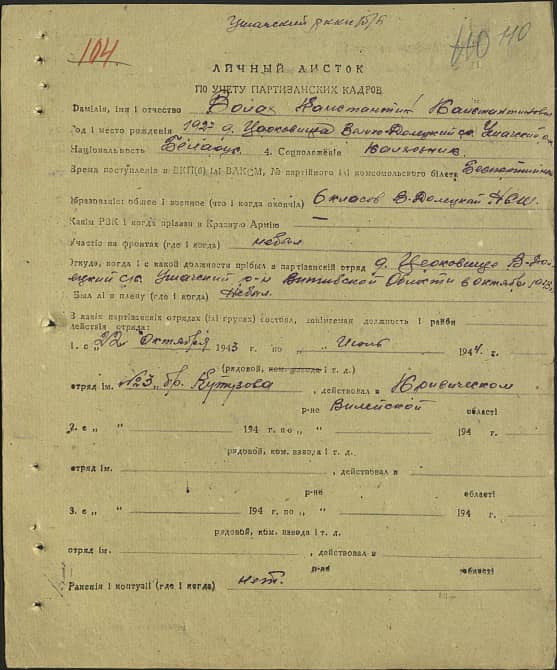 Ушачский РККП(б)Б
104. 110 110
ЛІЧНЫЙ ЛІСТОК
ПО УЧЕТУ ПАРТИЗАНСКИХ КАДРОВ
Фамілія, імя і отчество Войак Константин Константинович
Год і место рождения д. Церковище Велико-Долецкий с/с. Ушачский
Національность Белорус. 4. Соцположеніе Колхозник.
Время поступления в ВКП(б) ілі ВЛКСМ, № партійного ілі комсомольского білета Беспартійный
Образованіе: общее и военное (что і когда окончіл) 6 класов В-Долецкой НСШ.
Какім РВК і когда прізван в Красную Армию —
Участіе на фронтах (где і когда) небыл
Откуда, когда і с какой должности прібыл в партизанскій отряд д. Церковище В-До-
лецкий с/с. Ушачский р-н Витебской Области в октябре 1943
Был лі в плену (где і когда) Небыл.
В каких партізанскіх отрядах (ілі групах) состоял, занімаемая должность і район
действія отряда:
1. с „22 „ Октября 1943 г. по „ „ Июль 194 4. г.
(рядовой, ком. взвода і т. д.)
отряд ім. №3, бр. Кутузова, действовал в Кривическом
р-не Вилейской області
2. с „ “ 194 г. по „ “ 194 г.
рядовой, ком. взвода і т. д.
отряд ім. , действовал в
р-не області
3. с „ “ 194 г. по „ “ 194 г.
рядовой, ком. взвода і т. д.
отряд ім. , действовал в
р-не області
Ранения і контузіі (где і когда) нет.